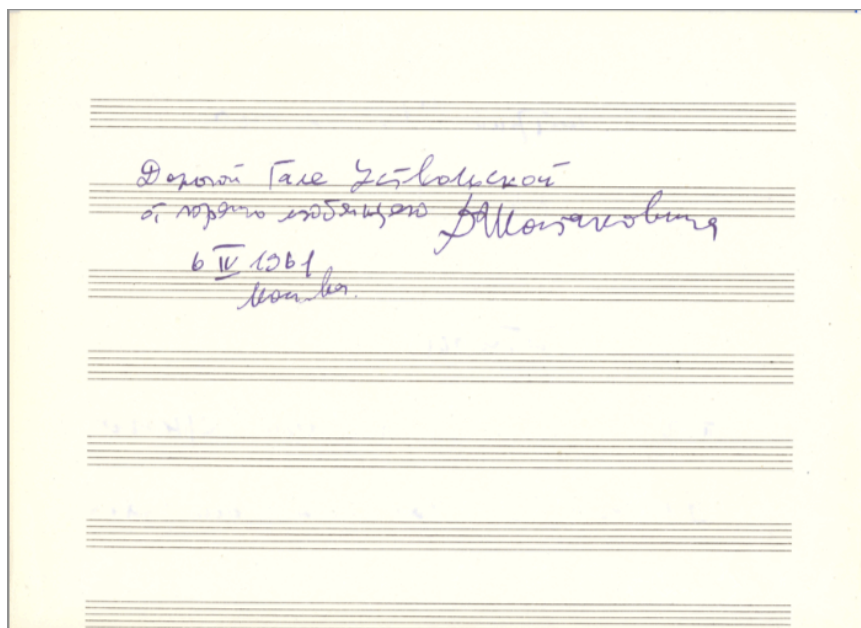 Дорогой Гале Уствольской
от горячо любящего ДШостаковича
6 IV 1961
Москва.